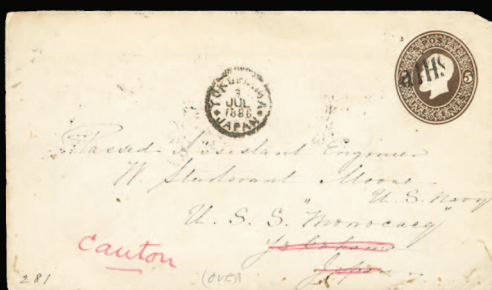 5
YOKOHAMA
3
JUL
1886
JAPAN
Passed Assistant Engineer
W Sturtevant Moore
U. S. Navy
U. S. S. "Monocacy"
Canton
Yokohama
Japan
281
(OVER